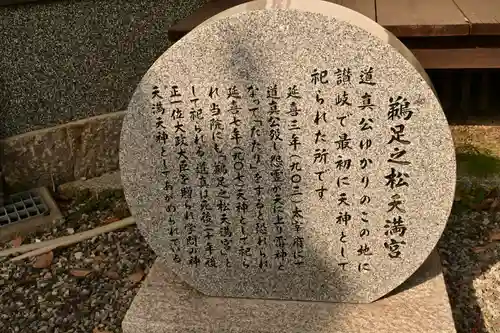 鵜足之松天満宮
道真公ゆかりのこの地に
讃岐で最初に天神として
祀られた所です
延喜三年(九〇三)太宰府に亡
道真公が死し怨霊が天により雷神と
なって「たたり」をすると恐れられ
延喜七年(九〇七)天神として祀ら
れ当院にも「鵜足之松天満宮」と
して祀られる 道真は死後二十年後
正一位太政大臣を賜られ学問の神
天満天神としてあがめられている